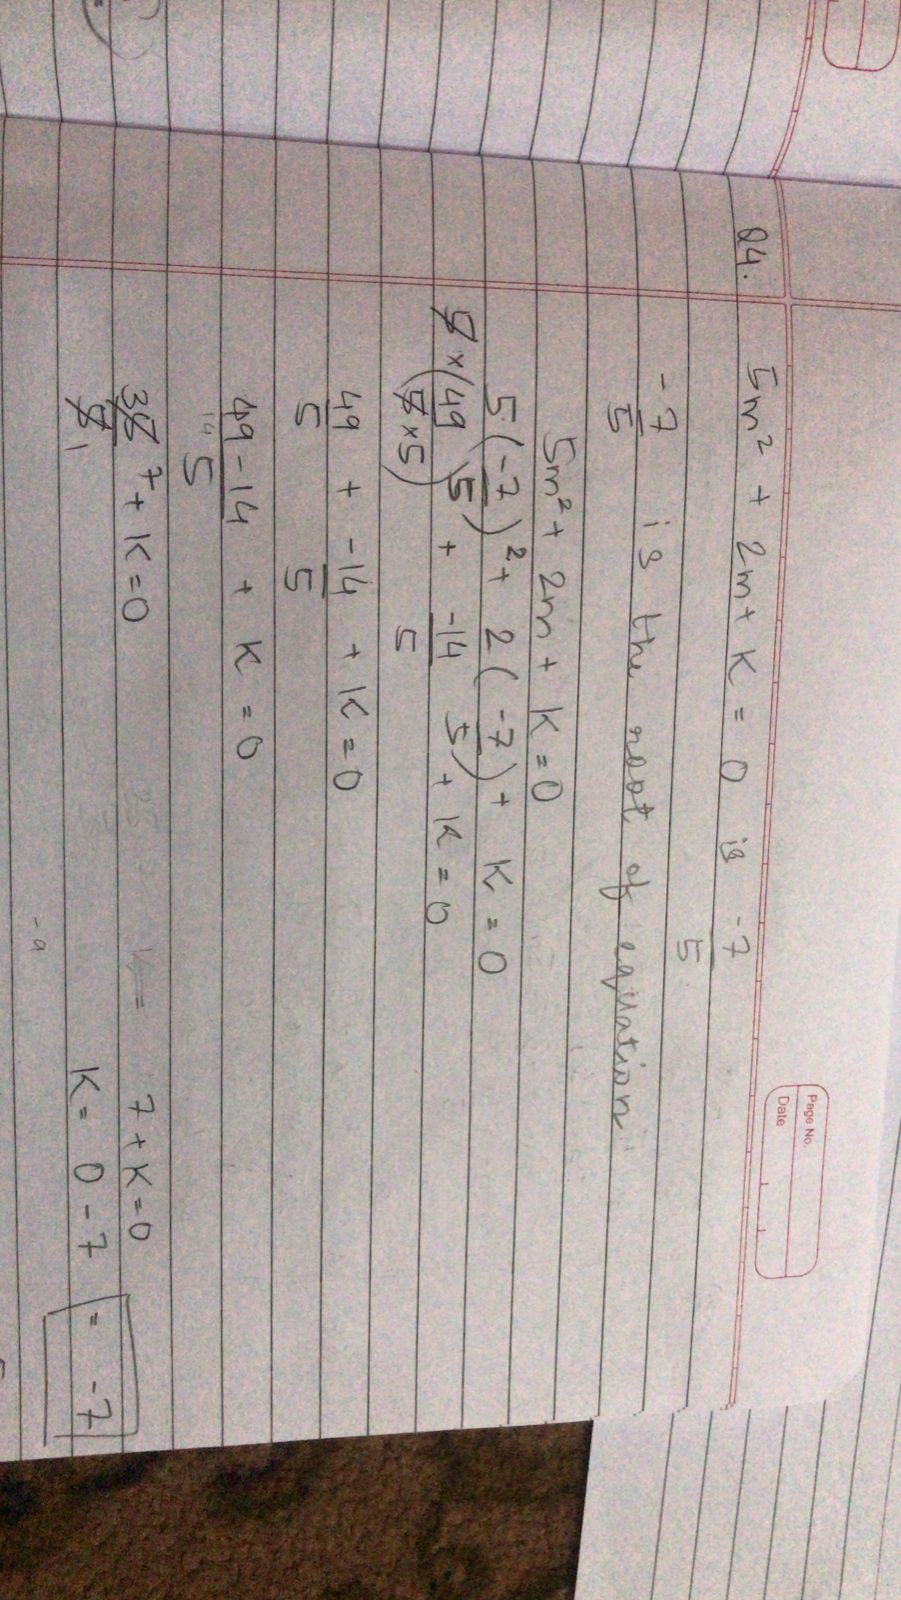 Page No.
Date
Q4. 5m² + 2m + K = 0 is -7/5
-7/5 is the root of equation
5m² + 2m + K = 0
5(-7/5)² + 2(-7/5) + K = 0
5 × (49/5×5) + -14/5 + K = 0
49/5 + -14/5 + K = 0
49-14/5 + K = 0
35/5 7/1 + K = 0
7 + K = 0
K = 0 - 7 = -7